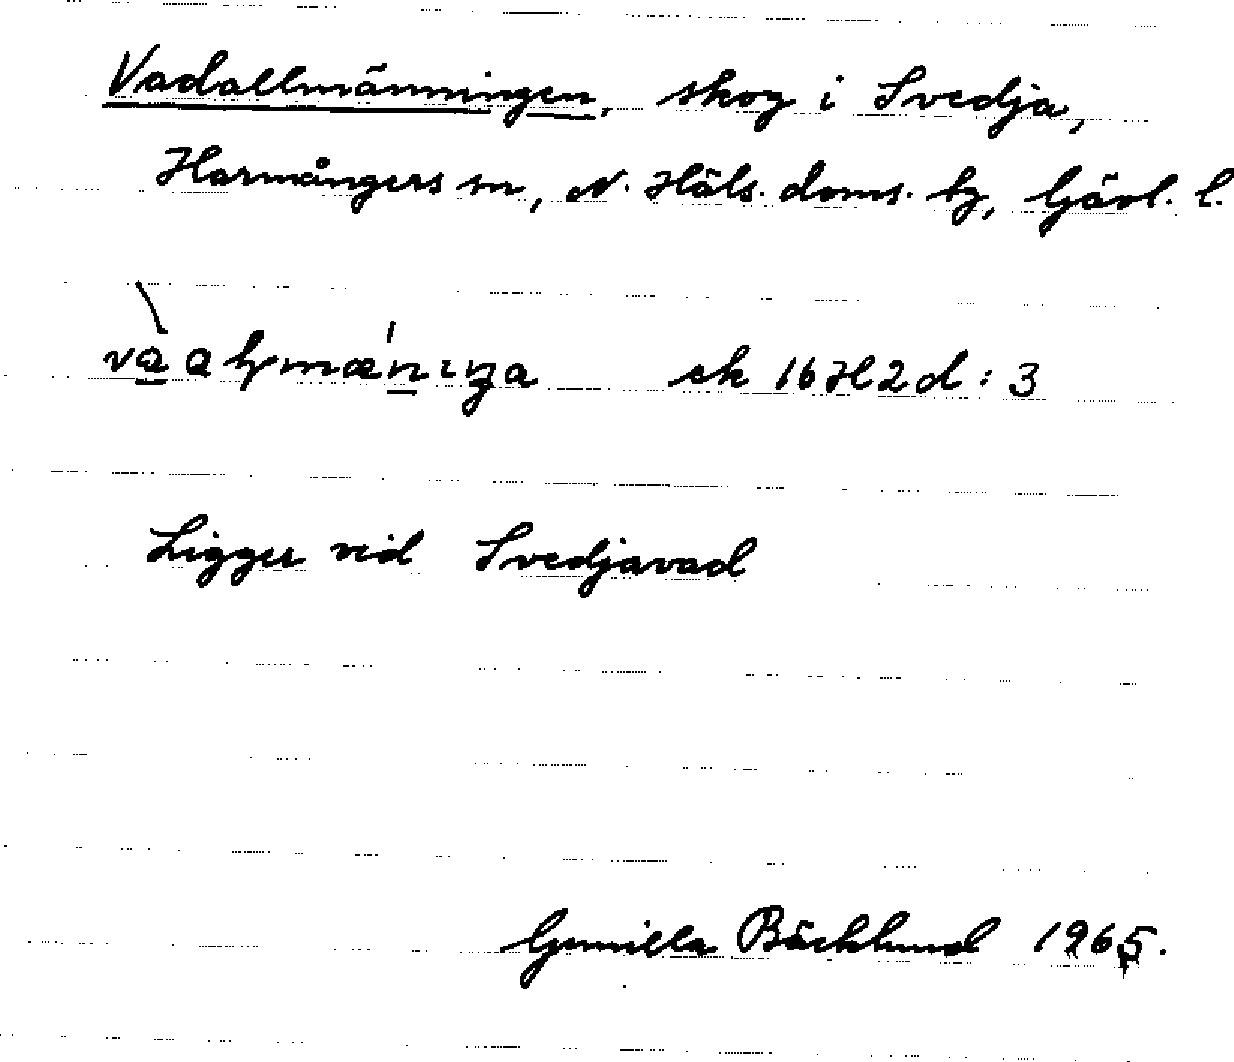 Vadallmänningen, skog i Svedja,
Harmångers sn, N. Häls. doms. tg, Gävl. l.
ek 16H2d:3
Ligger vid Svedjavad
Gunilla Bäcklund 1965.